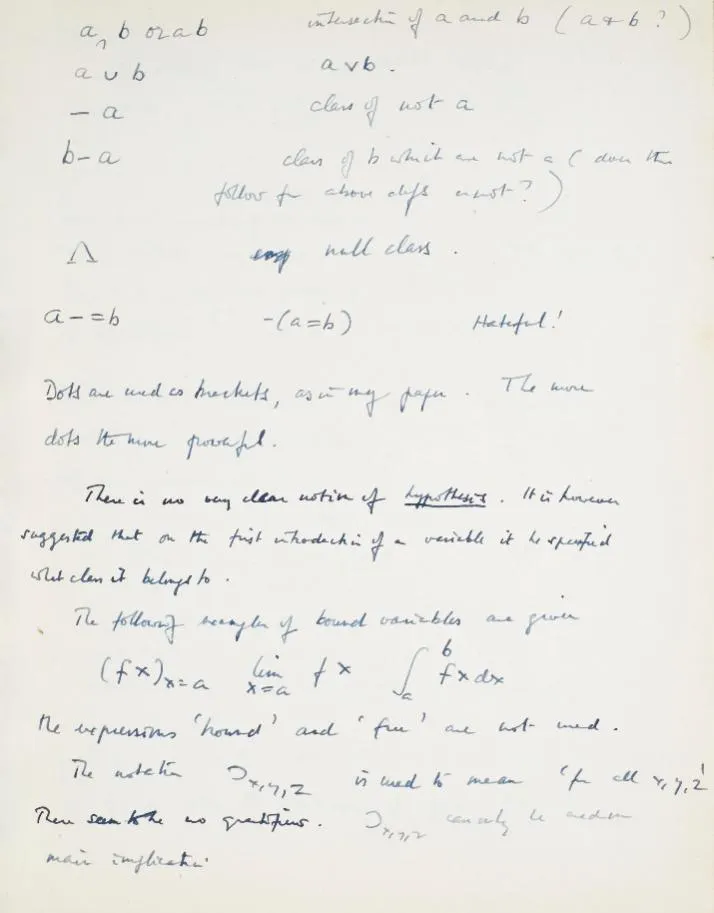 a ∩ b or ab intersection of a and b (a & b ?)
a ∪ b a v b .
– a class of not a
b – a class of b which are not a ( does this
follow fr above defs or not? )
Λ null class .
a – = b – (a = b) Hateful!
Dots are used as brackets, as in my paper . The more
dots the more powerful .
There is no very clear notion of hypothesis . It is however
suggested that on the first introduction of a variable it be specified
what class it belongs to .
The following examples of bound variables are given
(fx)x=a lim x=a fx ∫ₐᵇ fx dx
the expressions 'bound' and 'free' are not used .
The notation ⊃x,y,z is used to mean 'for all x, y, z'
There seem to be no quantifiers . ⊃x,y,z can only be used on
main implication